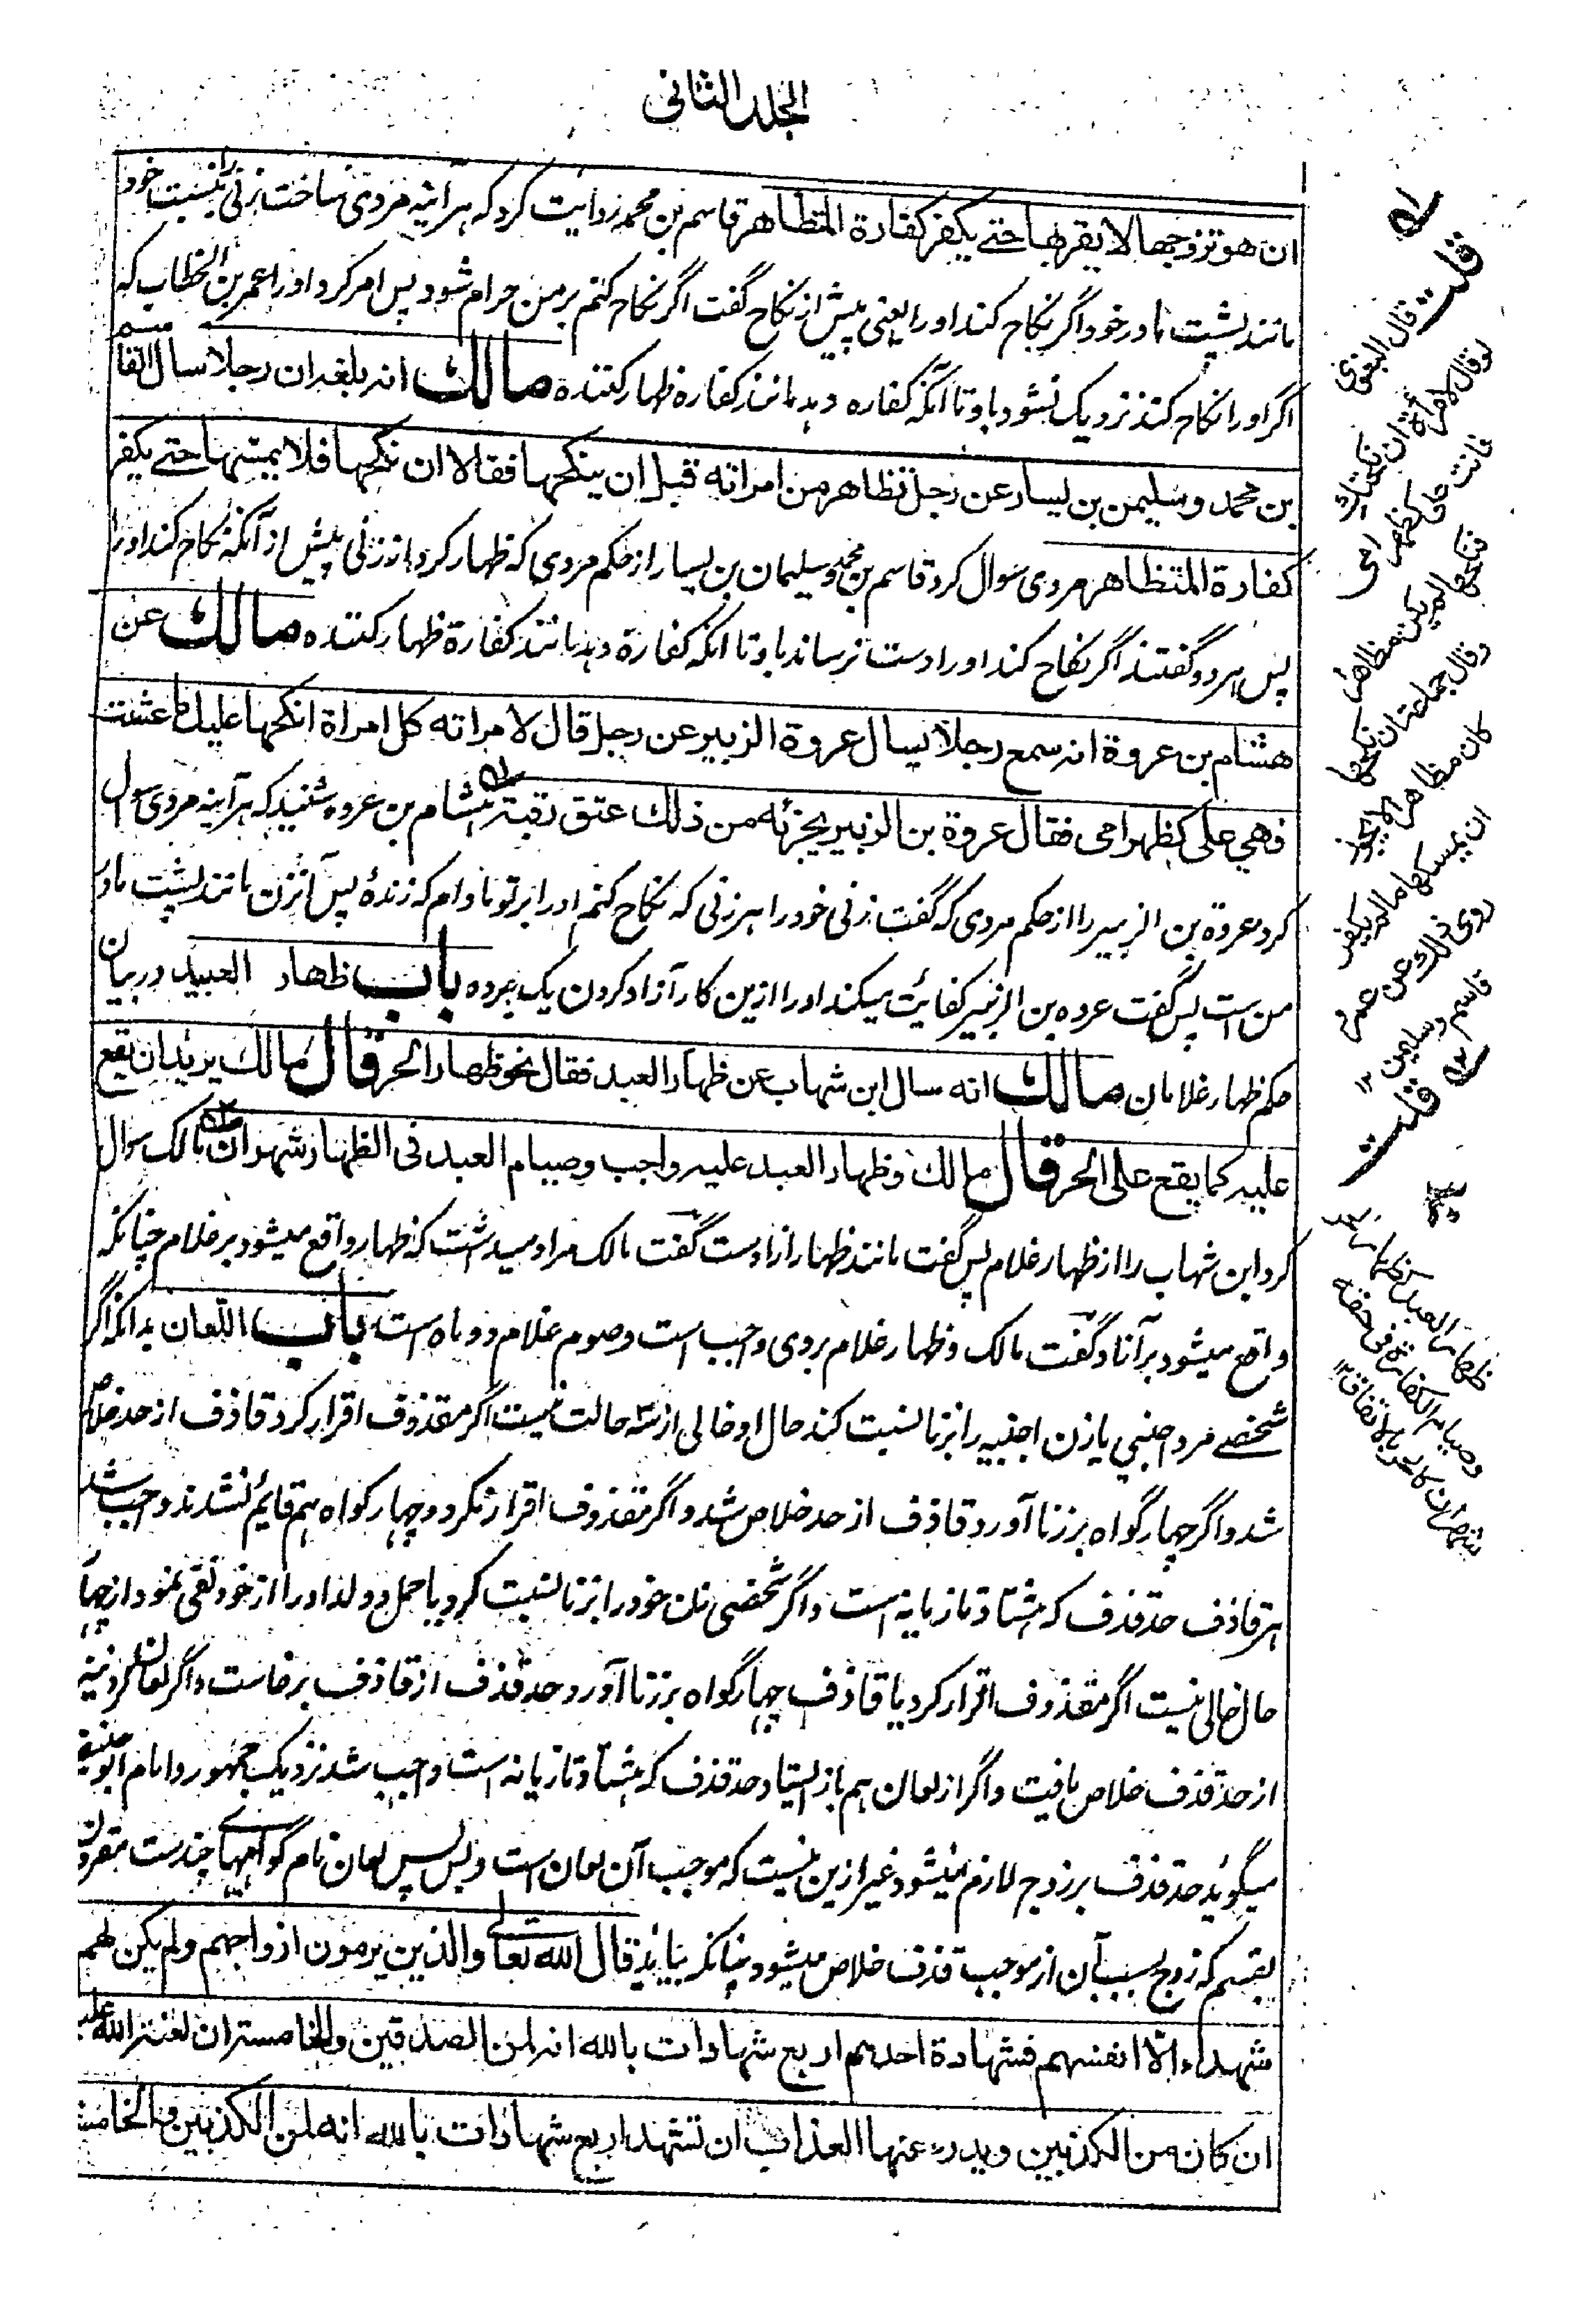 الجلد الثانی
ان هو تزوجها لا یقربها حتے یکفر کفارة المتظاهر قاسم بن محمد روایت کرد که هر آئینه مردی ساخت زنی را نسبت خود
مانند پشت مادر خود اگر نکاح کند اورا یعنی پیش از نکاح گفت اگر نکاح کنم بر من حرام شود پس امر کرد اورا عمر بن الخطاب که
اگر اورا نکاح کند نزدیک نشود باو تا آنکه کفاره دهد مانند کفاره ظهار کننده مالك انه بلغه ان رجلا سال القاسم
بن محمد وسلیمن بن یسار عن رجل تظاهر من امراته قبل ان ینکحها فقالا ان نکحها فلا یمسها حتے یکفر
کفارة المتظاهر مردی سوال کرد قاسم بن محمد وسلیمان بن یسار از حکم مردی که ظهار کرد از زنی پیش از آنکه نکاح کند اورا
پس هر دو گفتند اگر نکاح کند اورا دست نرساند باو تا انکه کفارة دهد مانند کفارة ظهار کننده مالك عن
هشام بن عروة انه سمع رجلا یسال عروة الزبیر عن رجل قال لامراته کل امراة انکحها علیك ما عشت
فهی علی کظهر امی فقال عروة بن الزبیر یجزئه من ذلك عتق رقبة هشام بن عروه شنید که هر آینه مردی سوال
کرد عروة بن الزبیر را از حکم مردی که گفت زنی خود را هر زنی که نکاح کنم اورا بر تو مادام که زنده پس آنزن مانند پشت مادر
من است پس گفت عروه بن الزبیر کفایت میکند اورا ازین کار آزاد کردن یک برده باب ظهار العبید در بیان
حکم ظهار غلامان مالك انه سال ابن شهاب عن ظهار العبد فقال نحو ظهار الحر قال مالك یرید ان یقع
علیه کما یقع علی الحر قال مالك وظهار العبد علیه واجب وصیام العبد فی الظهار شهران مالک سوال
کرد ابن شهاب را از ظهار غلام پس گفت مانند ظهار ازاد ست گفت مالک مراد میداشت که ظهار واقع میشود بر غلام چنانکه
واقع میشود بر آزاد گفت مالک وظهار غلام بر وی واجب است وصوم غلام دو ماه است باب اللعان بدانکه اگر
شخصے مرد اجنبی یا زن اجنبیه را بزنا نسبت کند حال او خالی از سه حالت نیست اگر مقذوف اقرار کرد قاذف از حد خلاص
شد واگر چهار گواه بر زنا آورد قاذف از حد خلاص شد واگر مقذوف اقرار نکرد وچهار کواه هم قایم نشدند واجب شد
بر قاذف حد قذف که هشتاد تازیانه است واگر شخصی زن خود را بزنا نسبت کرد یا حمل وولد اورا از خود نفی نمود از چهار
حال خالی نیست اگر مقذوف اقرار کرد یا قاذف چهار گواه بر زنا آورد حد قذف از قاذف برخاست واگر لعان کرد نیز
از حد قذف خلاص یافت واگر از لعان هم باز ایستاد حد قذف که هشتاد تازیانه است واجب شد نزدیک جمهور وامام ابو حنیفه
میگوید حد قذف بر زوج لازم نمیشود غیر ازین نیست که موجب آن لعان است وبس پس لعان نام گواهیهای چند ست مقرون
بقسم که زوج بسبب آن از موجب قذف خلاص میشود چنانکه بیاید قال الله تعالی والذین یرمون ازواجهم ولم یکن لهم
شهداء الا انفسهم فشهادة احدهم اربع شهادات بالله انه لمن الصدقین والخامسة ان لعنة الله علیه
ان کان من الکذبین ویدرء عنها العذاب ان تشهد اربع شهادات بالله انه لمن الکذبین والخامسة
قلت قال البغوی
لو قال لامرأة ان نکحتك
فانت علی کظهر امی
فنکحها لم یکن مظاهرا
وقال جماعة ان نکحها
کان مظاهرا لا یجوز
ان یمسکها ما لم یکفر
روی ذلك عن عمر
قاسم وسلیمن ١٢
قلت
ظهار العبد کظهار الحر
وصیام الکفارة فی حقه
شهران کاملان بالاتفاق ١٢